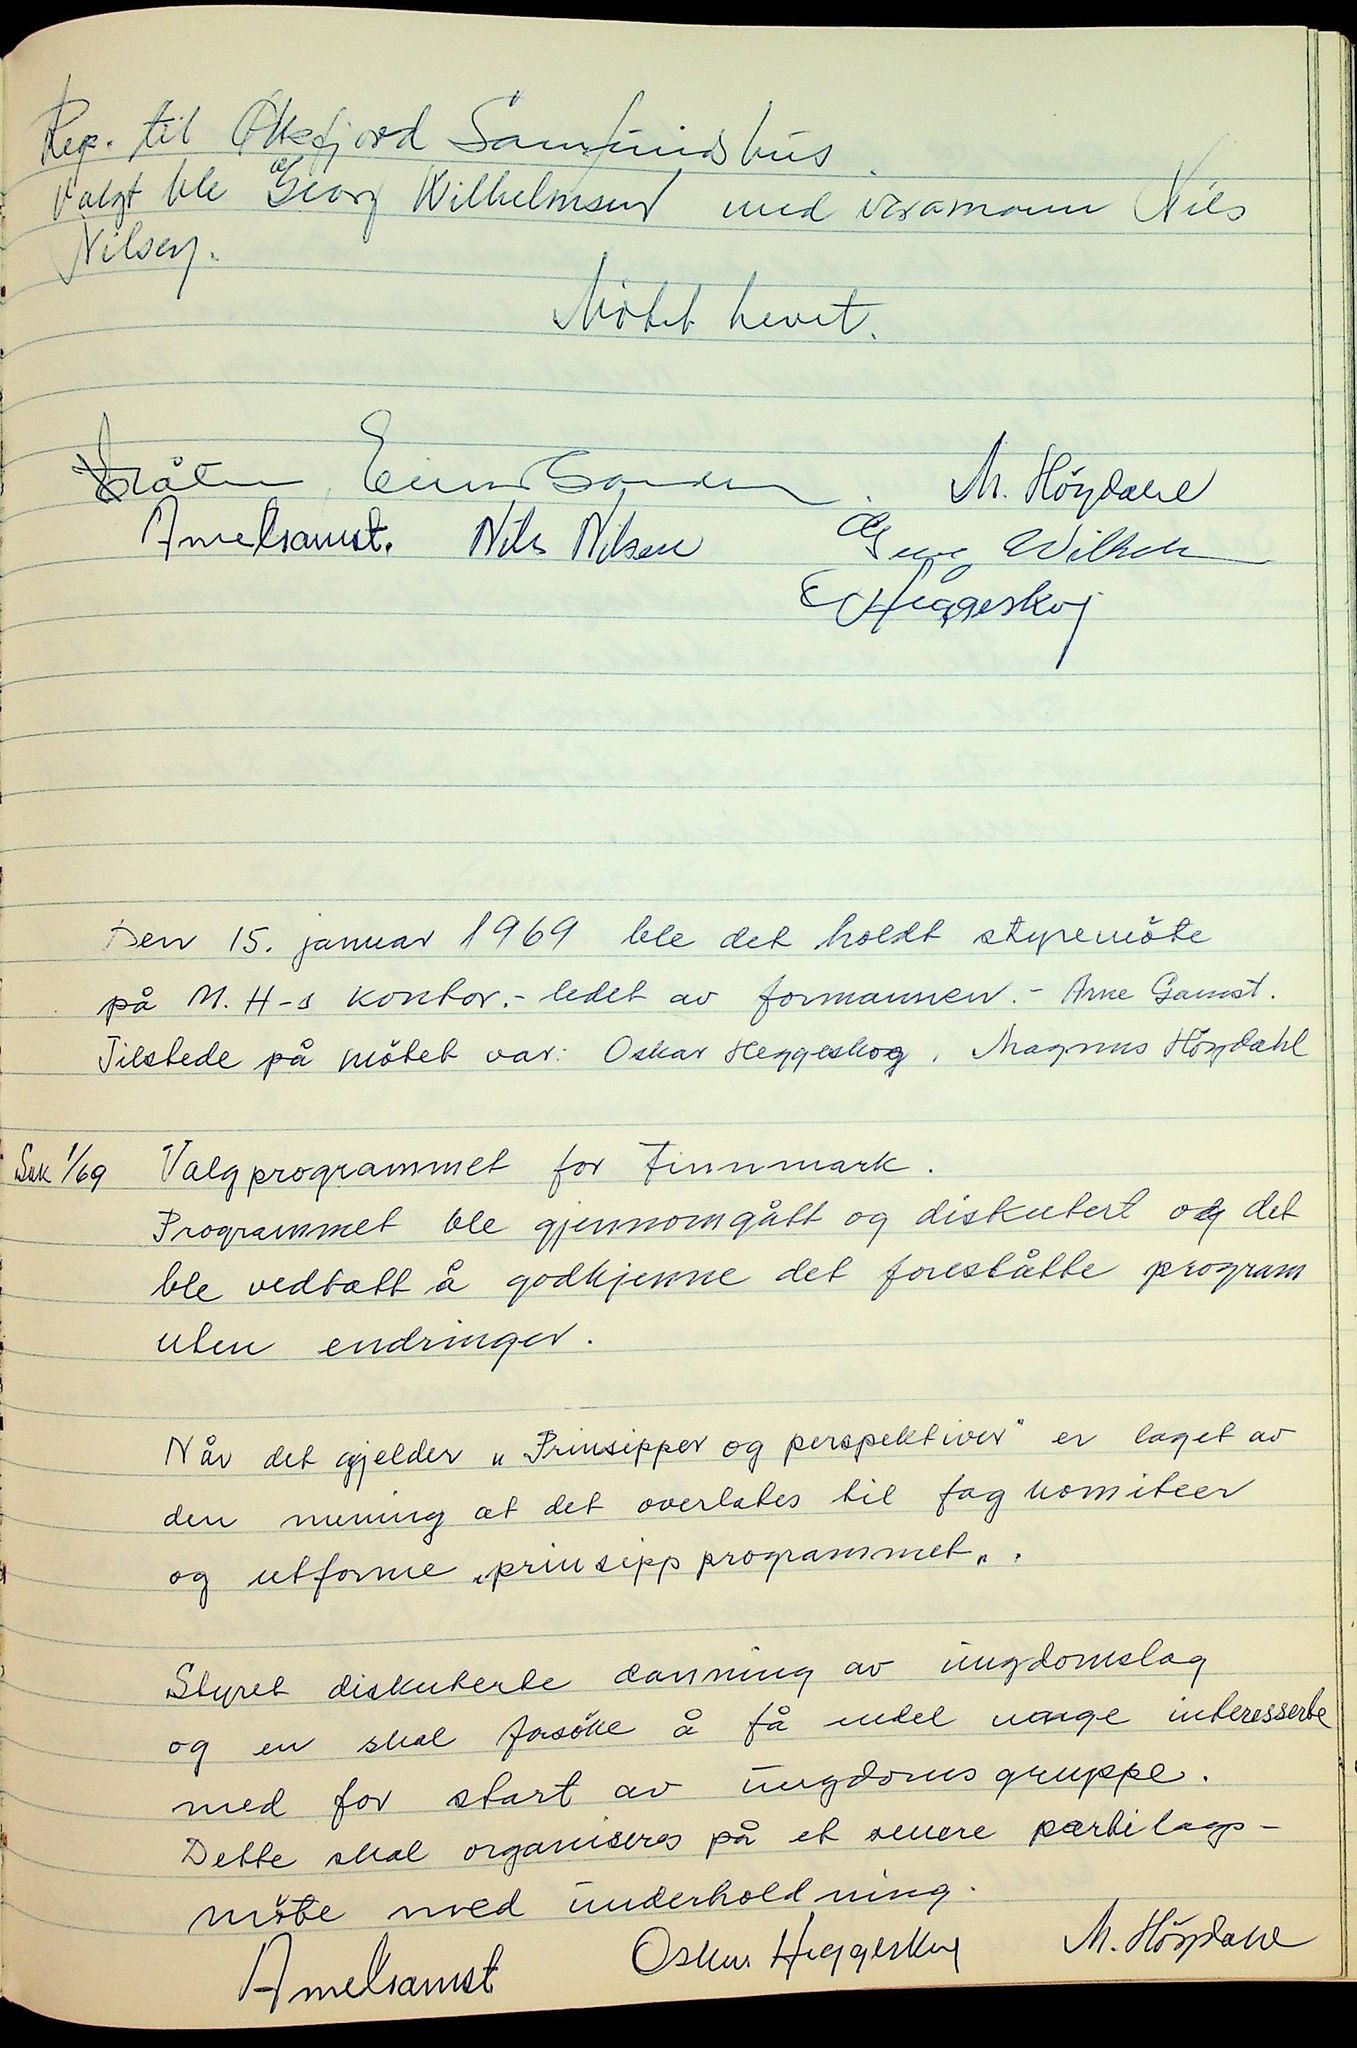 Rep. til Øksfjord Samfundshus.
Valgt ble Georg Wilhelmsen med varamann Nils
Nilsen.
Møtet hevet.
Bråten, M. Höydahl
Arne Gamst. Nils Nilsen Georg Wilhelm
O Heggeskog
Den 15. januar 1969 ble det holdt styremöte
på M. H-s kontor. - ledet av formannen. - Arne Gamst.
Tilstede på mötet var: Oskar Heggeskog, Magnus Höydahl
Sak 1/69 Valgprogrammet for Finnmark.
Programmet ble gjennomgått og diskutert og det
ble vedtatt å godkjenne det foreståtte program
uten endringer.
Når det gjelder „Prinsipper og perspektiver" er laget av
den mening at det overlates til fagkomiteer
og utforme „prinsipp programmet„.
Styret diskuterte danning av ungdomslag
og en skal forsöke å få endel unge interesserte
med for start av ungdomsgruppe.
Dette skal organiseres på et senere partilags-
möte med underholdning.
Arne Gamst Oskar Heggeskog M. Höydahl